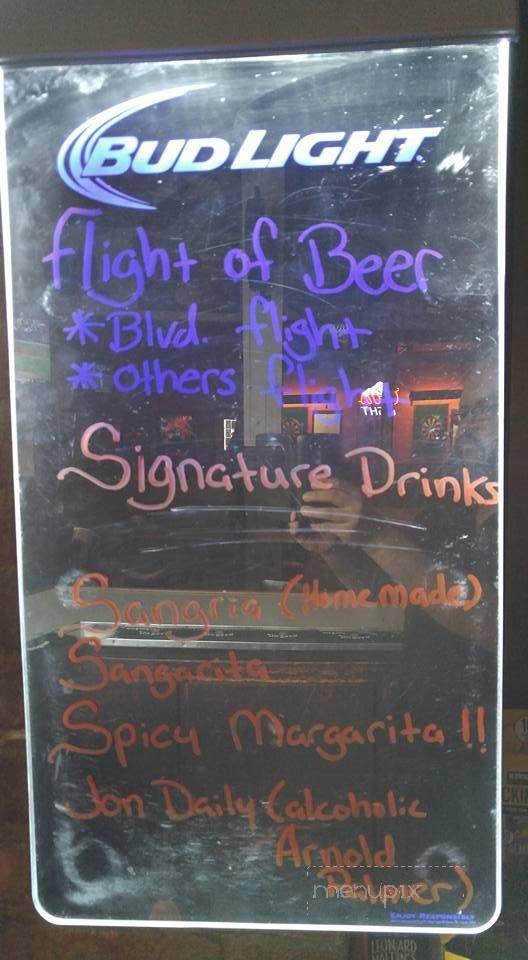 BUD LIGHT
flight of Beer
* Blvd. flight
* Others flights
Signature Drinks
Sangria (Homemade)
Sangarita
Spicy Margarita !!
Jon Daily (alcoholic
Arnold
Palmer)
menupix
ENJOY RESPONSIBLY
LEONARD